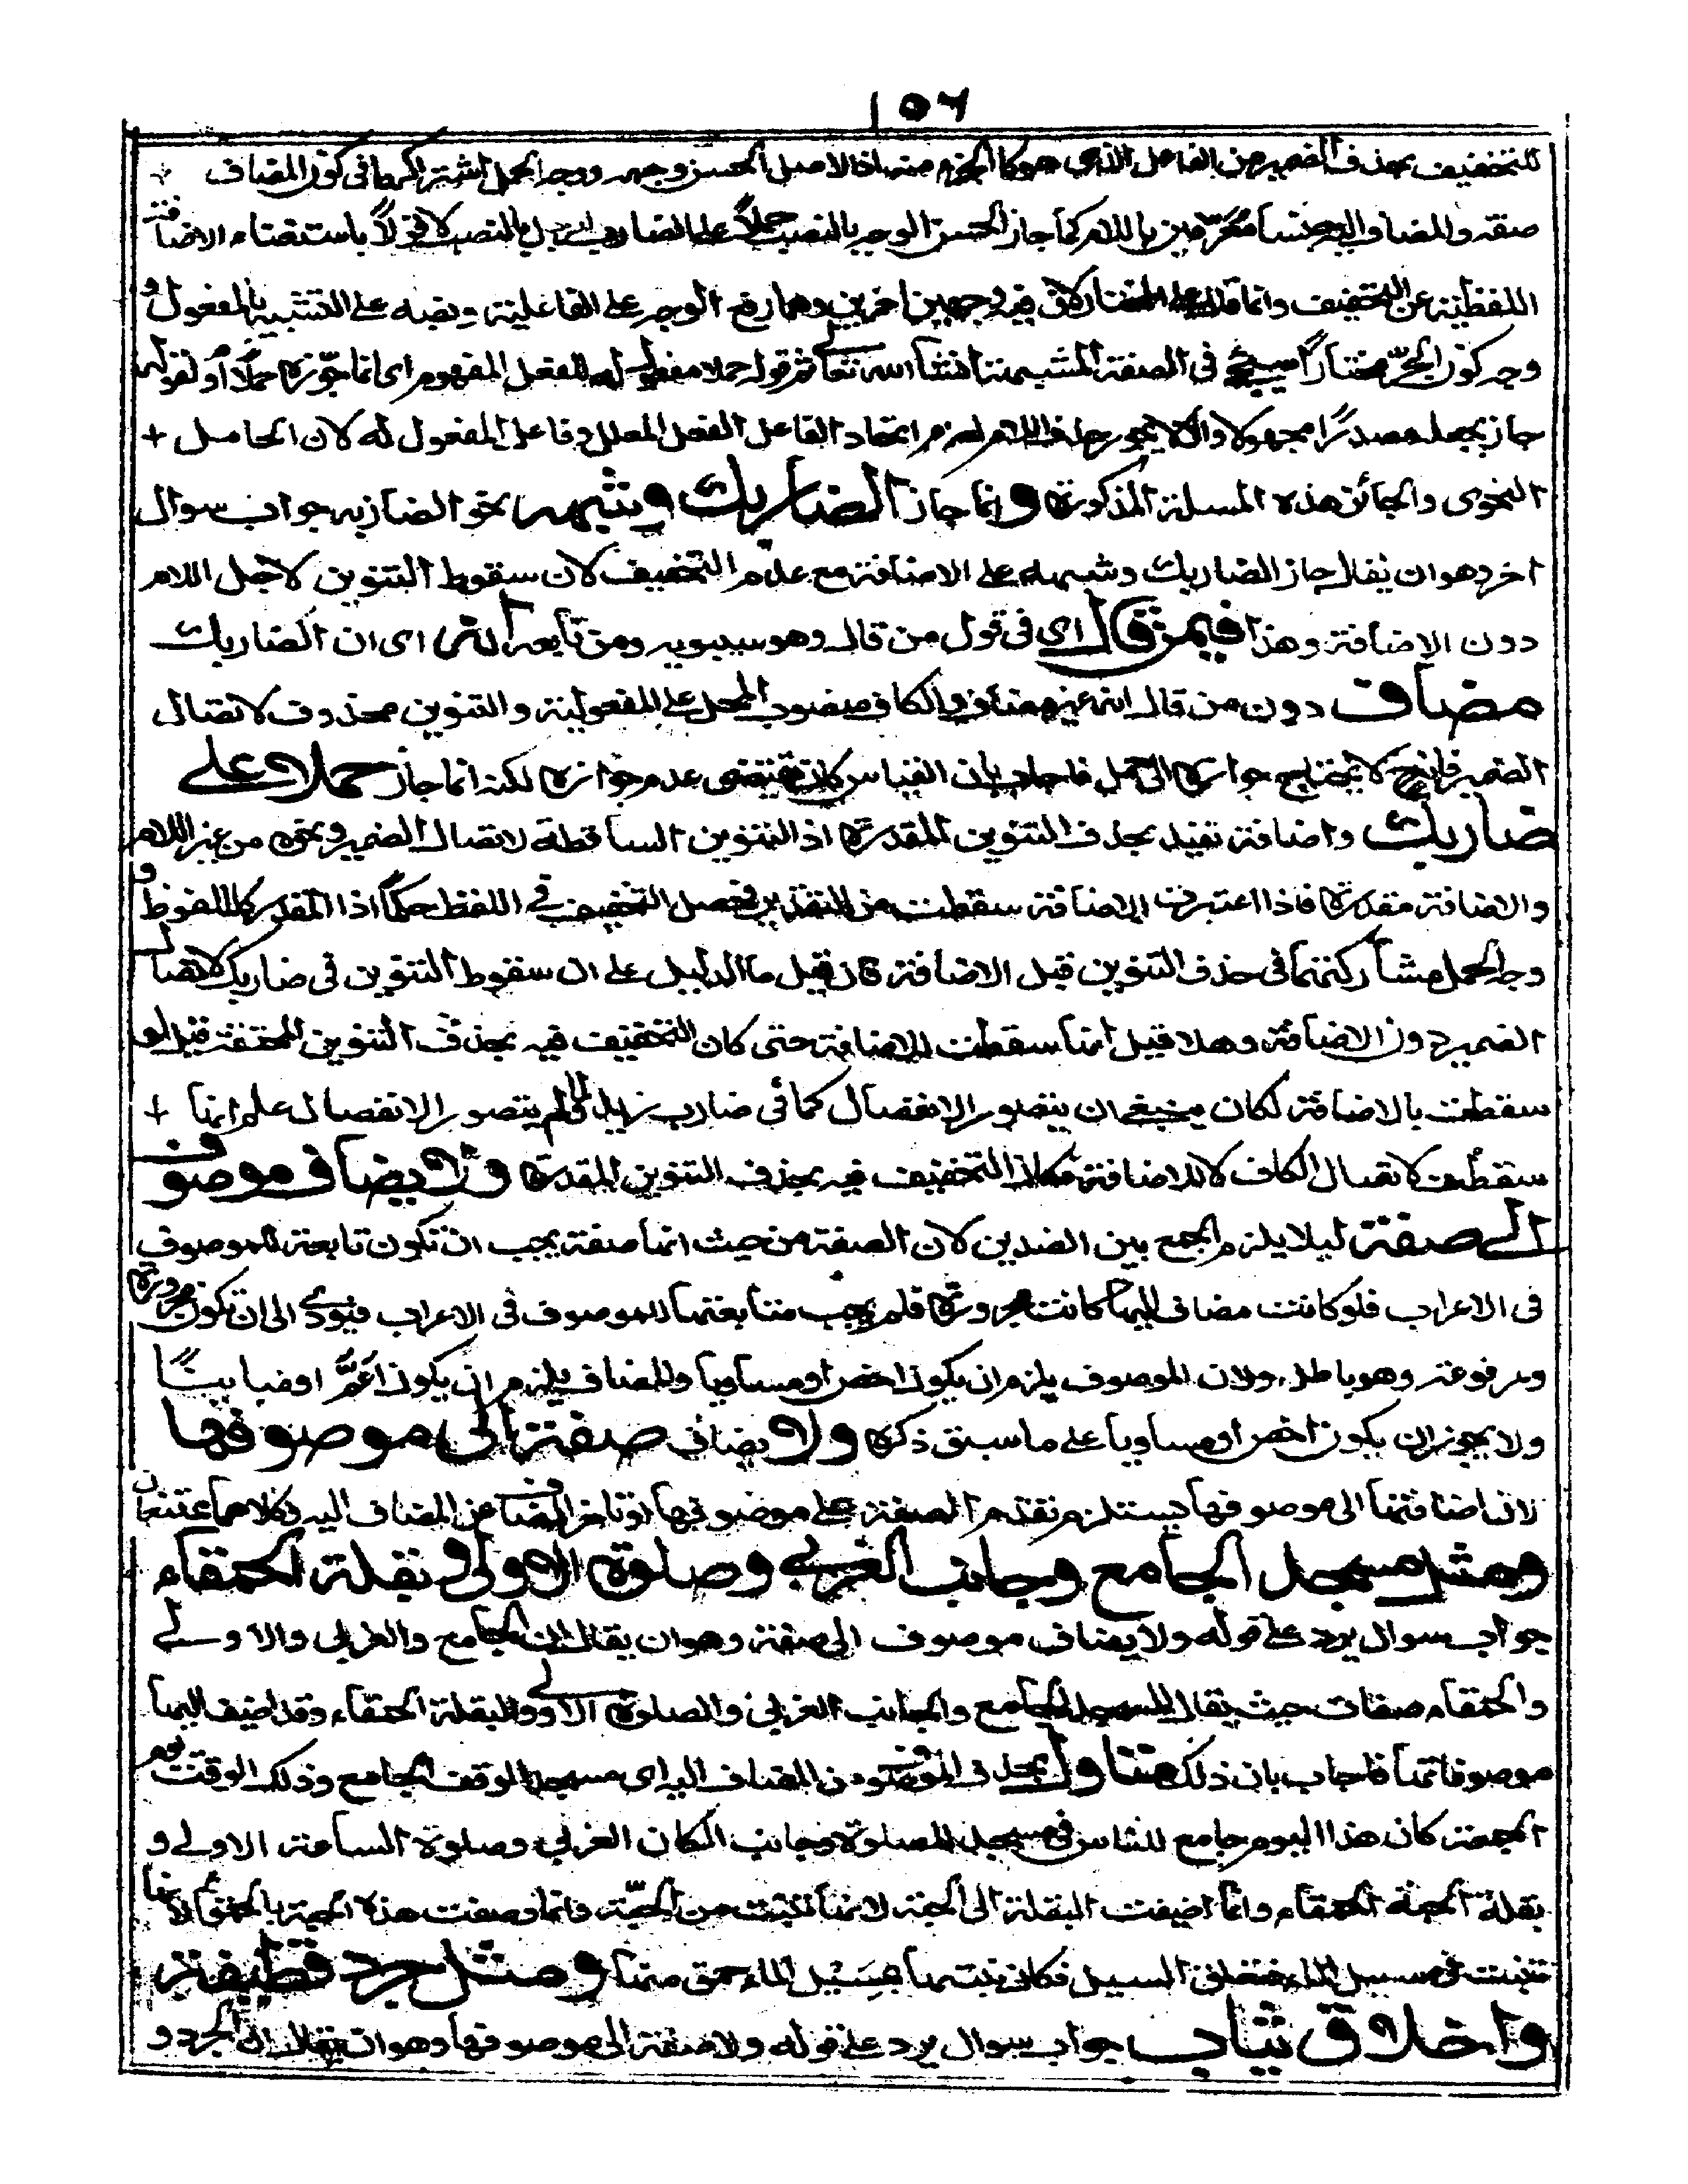 ١٥٦
للتخفيف بحذف الضمير من الفاعل الذي هو كالجزء منه اذ الاصل الحسن وجهه ووجه الحمل اشتراكهما في كون المضاف
صفة والمضاف اليه جنسا معرّفين باللام كما جاز الحسن الوجه بالنصب حملاً على الضارب الرجل بالنصب لا قولاً باستقصاء الاضافة
اللفظية عن التخفيف وانما قال على المختار لان فيه وجهين اخرين وهما رفع الوجه على الفاعلية ونصبه على التشبيه بالمفعول و
وجه كون الجرّ مختاراً سيجيء في الصفة المشبهة انشاء الله تعالى ثم قوله حملا مفعول له للفعل المفهوم اى انما جوّزه حملاً او لقوله
جاز بجعله مصدرًا مجهولا والا لا يجوز حذف اللام لعدم اتحاد الفاعل الفعل المعلل وفاعل المفعول له لان الحامل
النحوى والجائز هذه المسئلة المذكورة وانما جاز الضاربك وشبهه نحو الضاربه جواب سوال
اخر وهو ان يقال جاز الضاربك وشبهه على الاضافة مع عدم التخفيف لان سقوط التنوين لاجل اللام
دون الاضافة وهذا فيمن قال اى فى قول من قال وهو سيبويه ومن تابعه انه اى ان الضاربك
مضاف دون من قال انه غير مضاف والكاف منصوب المحل على المفعولية والتنوين محذوف لاتصال
الضمير فانه لا يحتاج جوازه الى حمل فاجاب بان القياس كان يقتضى عدم جوازه لكنه انما جاز حملا على
ضاربك واضافة تفيد بحذف التنوين المقدرة اذ التنوين الساقطة لاتصال الضمير ونحوه من غير اللام
والاضافة مقدرة فاذا اعتبرت الاضافة سقطت من التقدير فحصل التخفيف في اللفظ حكماً اذا المقدر كالملفوظ و
وجه الحمل مشاركتهما فى حذف التنوين قبل الاضافة فان قيل ما الدليل على ان سقوط التنوين فى ضاربك لاتصال
الضمير دون الاضافة وهلا قيل انها سقطت للاضافة حتى كان التخفيف فيه بحذف التنوين المحققة قيل لو
سقطت بالاضافة لكان ينبغى ان يتصور الانفصال كما في ضارب زيد فلما لم يتصور الانفصال علم انها
سقطت لاتصال الكاف لا للاضافة فكان التخفيف فيه بحذف التنوين المقدرة ولا يضاف موصوف
الى صفة ليلا يلزم الجمع بين الضدين لان الصفة من حيث انها صفة يجب ان تكون تابعة للموصوف
فى الاعراب فلو كانت مضاف اليها كانت مجرورة فلم يجب متابعتها للموصوف فى الاعراب فيؤدى الى ان تكون مجرورة
ومرفوعة وهو باطل ولان الموصوف يلزم ان يكون اخص او مساويا والمضاف يلزم ان يكون اَعَمَّ او مباينًا
ولا يجوز ان يكون اخص او مساويا على ما سبق ذكره ولا يضاف صفة الى موصوفها
لان اضافتها الى موصوفها يستلزم تقدم الصفة على موصوفها او تاخر المضاف عن المضاف اليه وكلاهما ممتنعان
ومثل مسجد الجامع وجانب الغربي وصلوة الاولى وبقلة الحمقاء
جواب سوال يرد على قوله ولا يضاف موصوف الى صفة وهو ان يقال ان الجامع والغربى والاولى
والحمقاء صفات حيث يقال المسجد الجامع والجانب الغربى والصلوة الاولى والبقلة الحمقاء وقد اضيف اليها
موصوفاتها فاجاب بان ذلك متاول بحذف الموصوف من المضاف اليه اى مسجد الوقت الجامع وذلك الوقت يوم
الجمعة كان هذا اليوم جامع للناس فى مسجد للصلوة وجانب المكان الغربى وصلوة الساعة الاولى و
بقلة الحبة الحمقاء وانما اضيفت البقلة الى الحبة لانها نبتت من الحبّة وانما وصفت هذه الحبة بالحمقاء لانها
تنبت فى مسيل الماء السيل فكان نبتها بمَسِيْل الماء حمق منها ومثل جرد قطيفة
واخلاق ثياب جواب سوال يرد على قوله ولا صفة الى موصوفها وهو ان يقال ان الجرد و